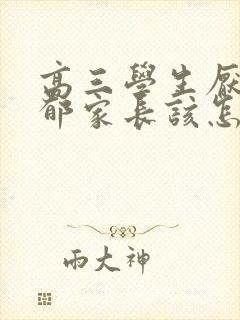 高三學生厭
郁家長該怎
雨大神